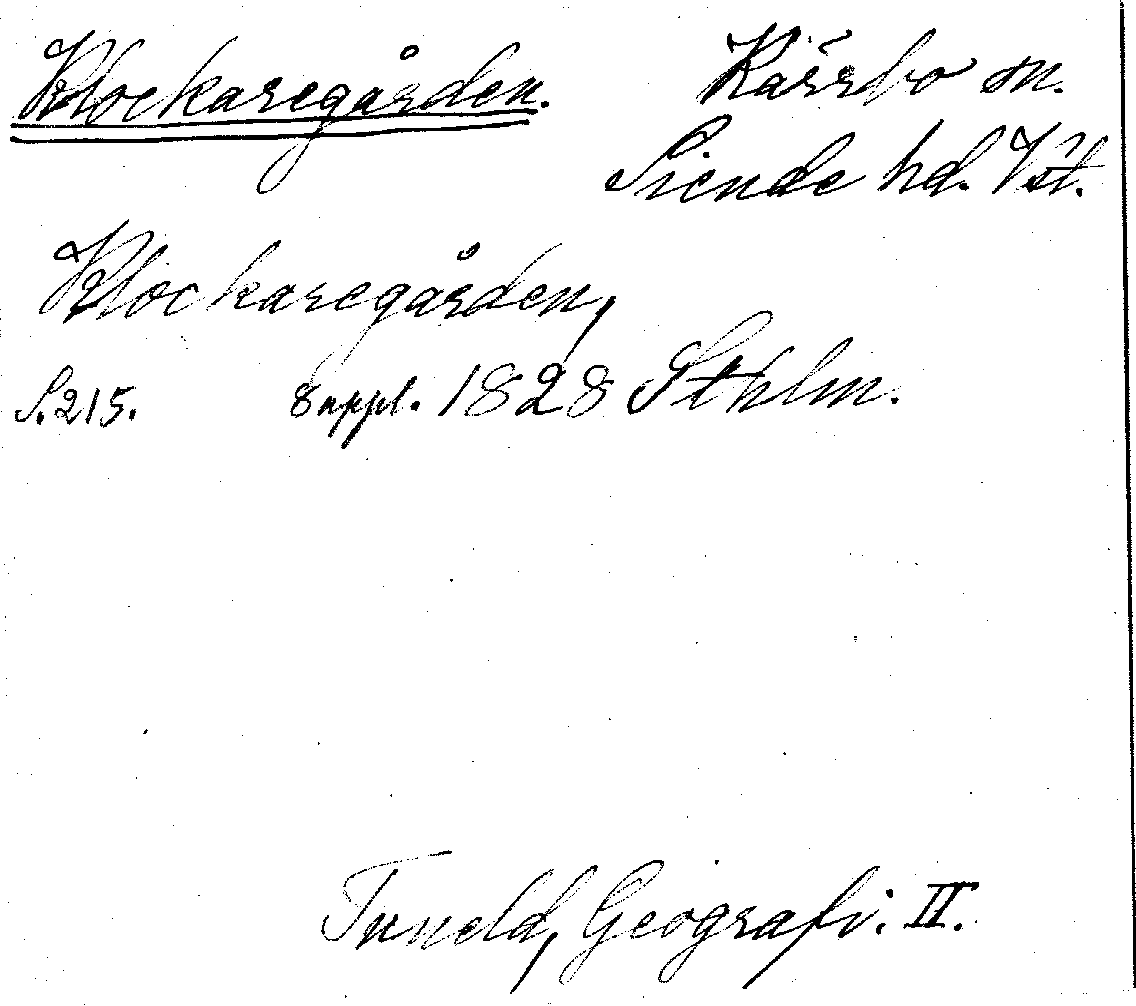 Klockaregården.
Kärrbo sn.
Siende hd. Vst.
Klockaregården,
S. 215. Suppl. 1828 Sthlm.
Tuneld, Geografi. II.